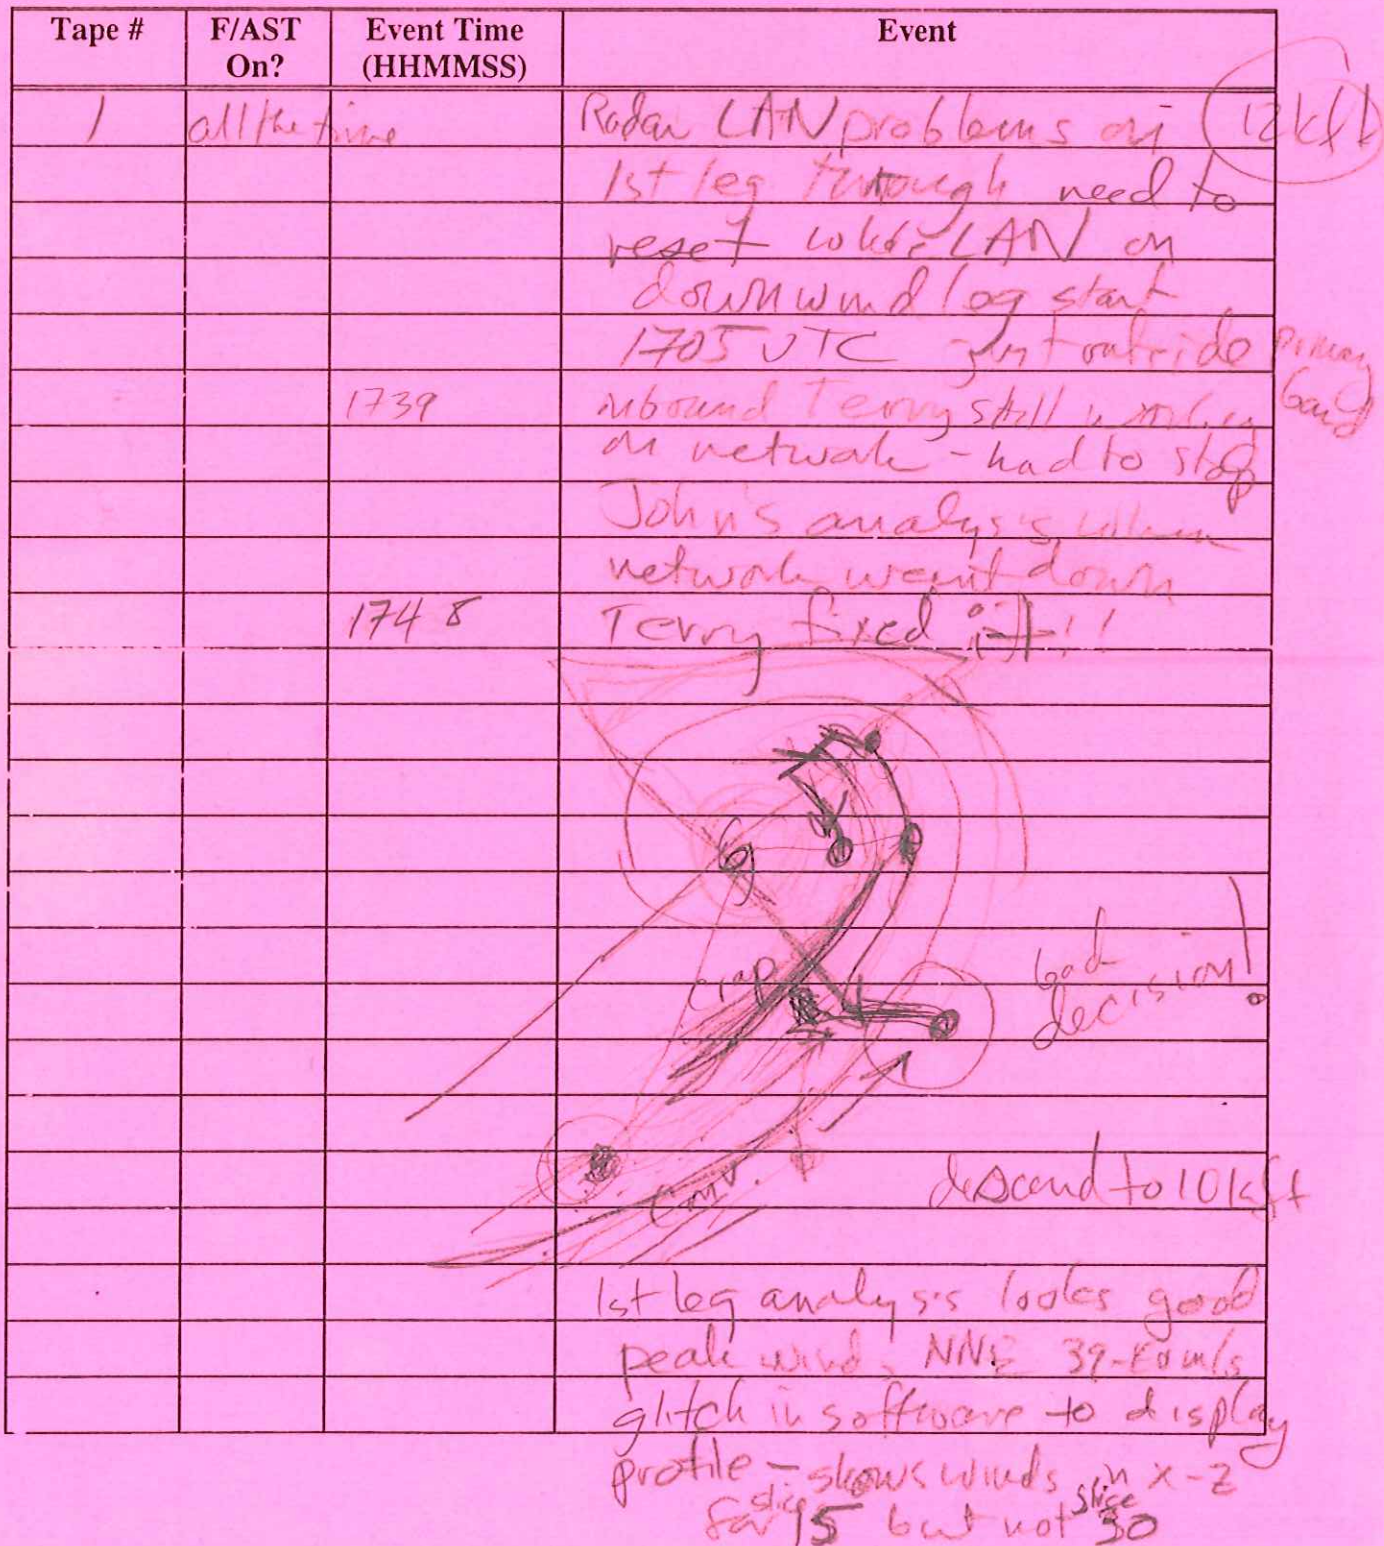 Tape #
F/AST On?
Event Time (HHMMSS)
Event
1
all the time
Radar LAN problems on
12kft
1st leg through need to
reset whole LAN on
downwind leg start
1705 UTC - just outside
primary
band
1739
inbound Terry still working
on network - had to stop
John's analysis when
network went down
1748
Terry fixed it!!
crap
bad
decision!
descend to 10 kft
conv.
1st leg analysis looks good
peak wind NNE 39-40 m/s
glitch in software to display
profile - shows winds in x-z
for slice 15 but not slice 30